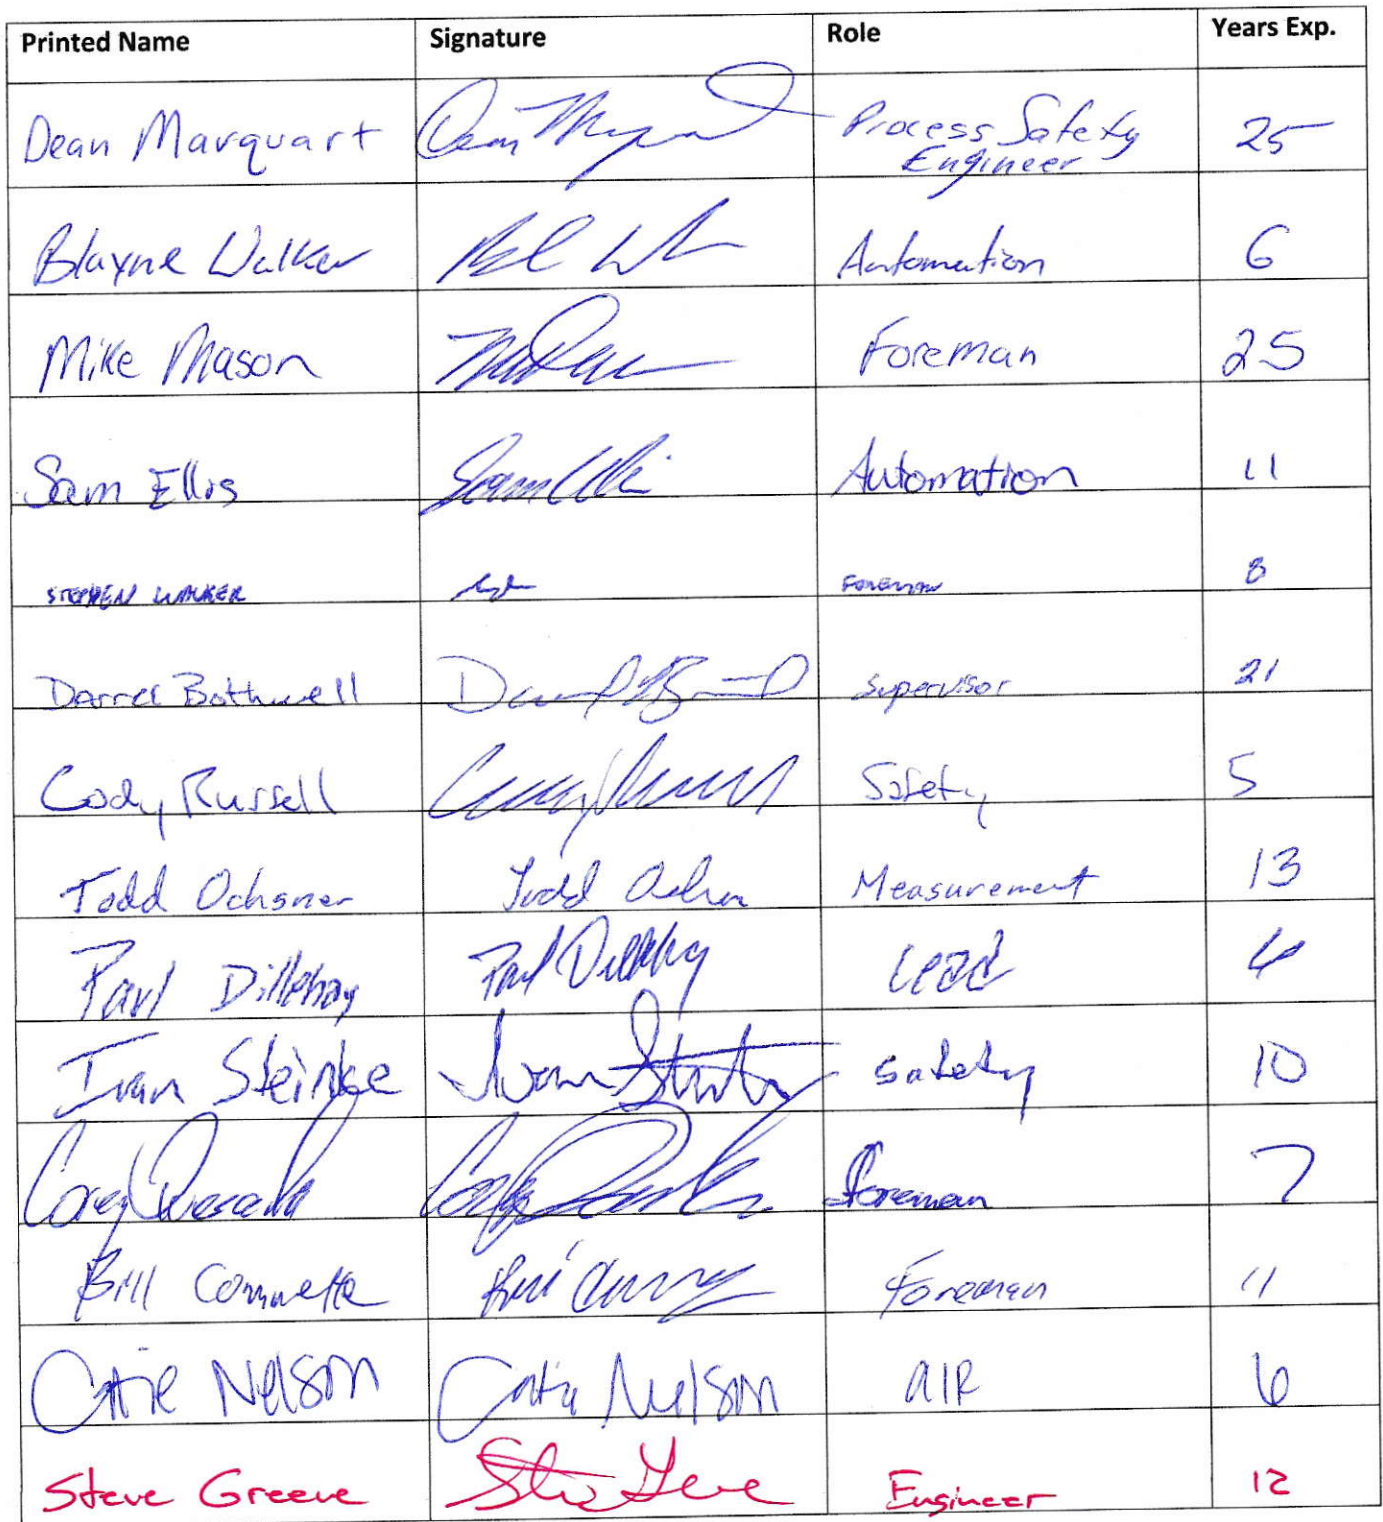 Printed Name Signature Role Years Exp.
Dean Marquart Process Safety Engineer 25
Blayne Walker Automation 6
Mike Mason Foreman 25
Sam Ellis Sam Ellis Automation 11
STEPHEN WALKER FOREMAN 8
Darrel Bothwell Supervisor 21
Cody Russell Safety 5
Todd Ochsner Todd Ochsner Measurement 13
Paul Dillehay Paul Dillehay Lead
Ivan Steinke Ivan Safety 10
Corey Foreman 7
Bill Foreman 11
Catie Nelson Catie Nelson AIR 6
Steve Greeve Steve Greeve Engineer 12